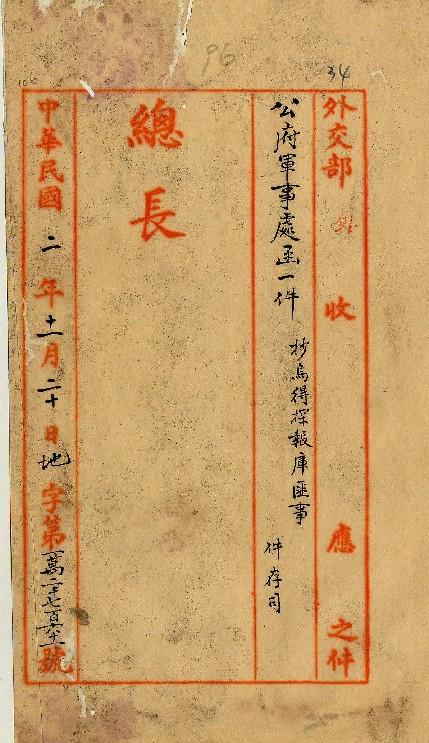 96
34
外交部 收 應 之件
公府軍事處函一件 抄烏得探報庫匪事
件存司
總長
中華民國二年十一月二十日地字第一萬二千七百號